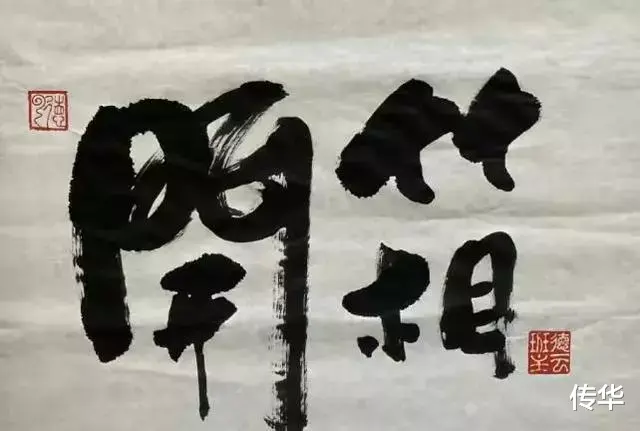 開箱
德云
班主
传华